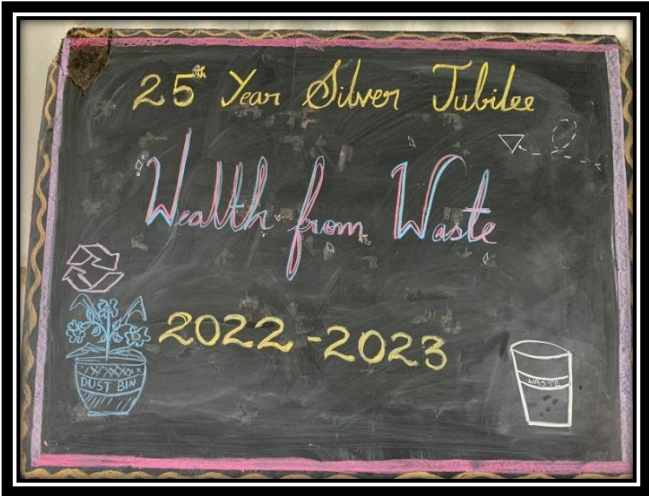 25th Year Silver Jubilee
Wealth from Waste
2022-2023
DUST BIN
WASTE